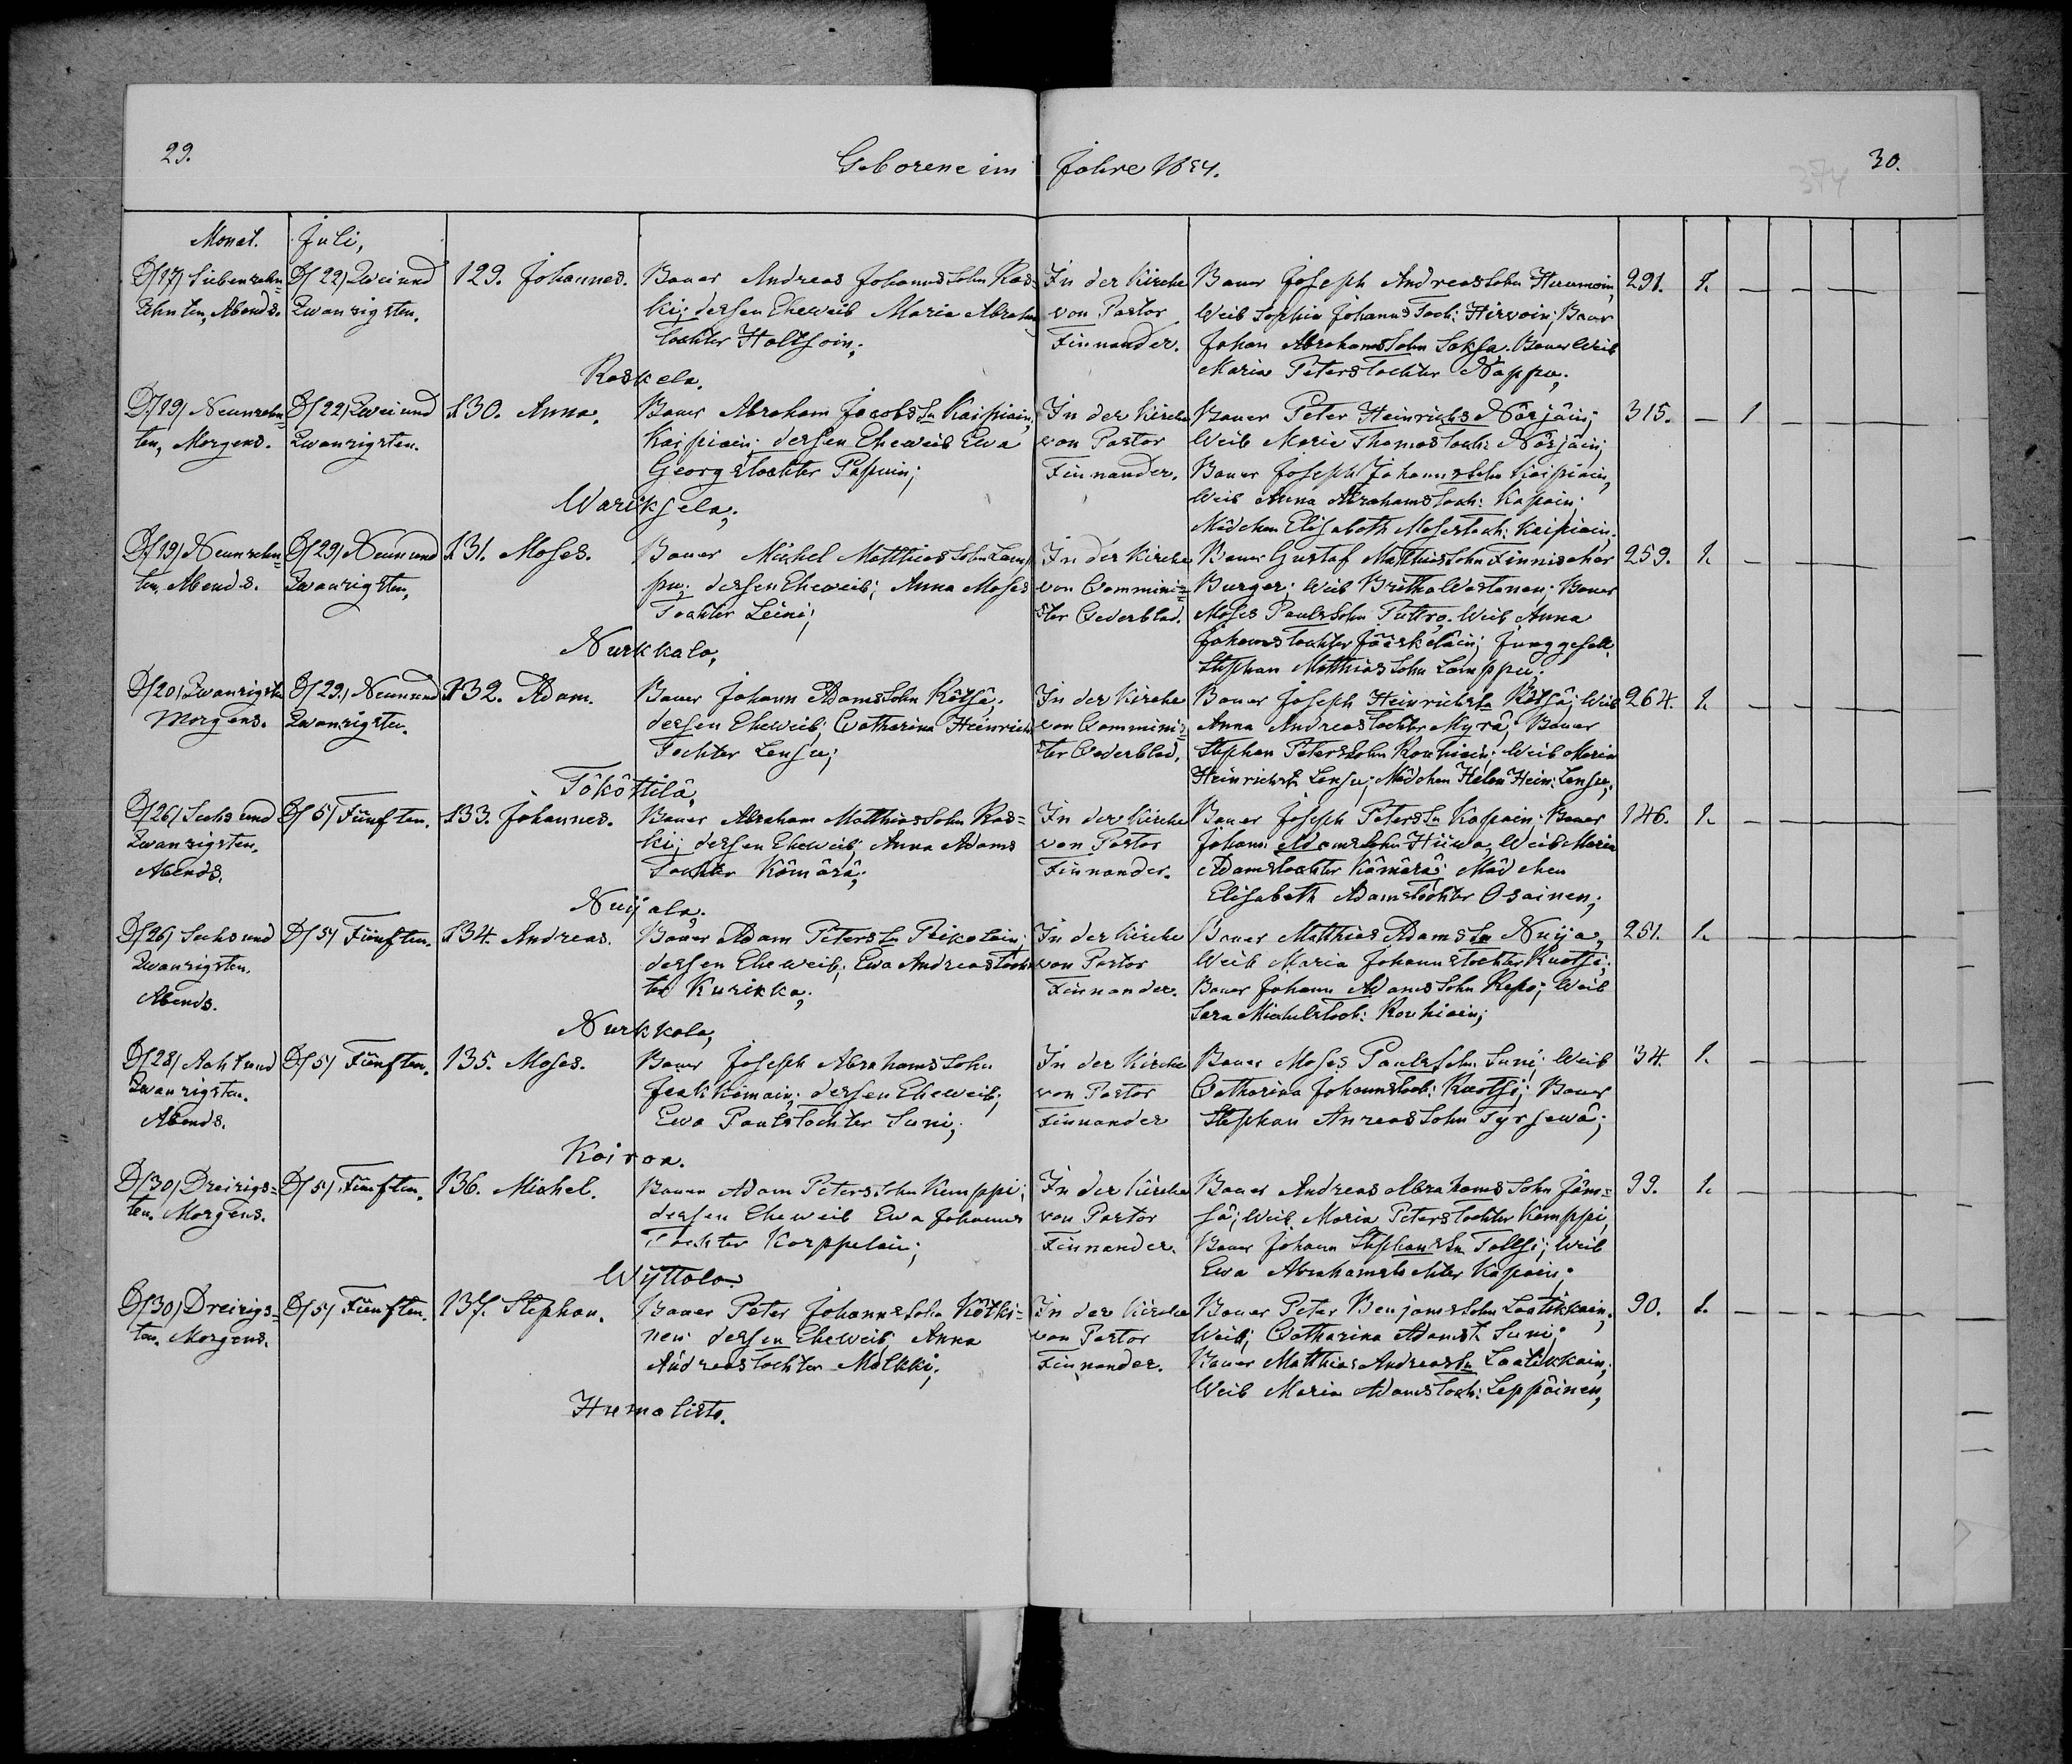 29.
Geborene im Jahre 1834.
30.
374
Monat. Juli,
D/17/ Siebenzehn=
Zehnten, Abends.
D/22/ Zwei und
Zwanzigsten.
129. Johannes.
Bauer Andreas Johanns Sohn Ras=
ki; dessen Eheweib Maria Abraham
tochter Holtsoin;
Raskela.
In der Kirche
von Pastor
Finnander.
Bauer Joseph Andreas Sohn
Weib Sophia Johanns Toch: Hirvoin; Bauer
Johan Abrahams Sohn Soksa. Bauer Weib
Maria Peters Tochter Nappu;
291. 1. — — — —
D/19/ Neunzehn=
ten, Morgens.
D/22/ Zwei und
Zwanzigsten.
130. Anna.
Bauer Abraham Jacobs Sn Kaipiain,
Kaipiain; dessen Eheweib Ewa
Georgstochter
Wariksela;
In der Kirche
von Pastor
Finnander.
Bauer Peter Heinrichs Närjäin;
Weib Maria Thomas Toch: Närjäin;
Bauer Joseph Johanns Sohn Kaipiain,
Weib Anna Abrahams Toch: Kapain;
Mädchen Elisabeth Moses Toch: Kaipiain;
315. — 1 — — —
D/19/ Neunzehn=
ten, Abends.
D/29/ Neun und
Zwanzigsten,
131. Moses.
Bauer Michel Matthias Sohn Lam
pu; dessen Eheweib; Anna Moses
Tochter Leini;
Nurkkala,
In der Kirche
von Commini=
ster Cederblad.
Bauer Gustaf Matthias Sohn Finnischer
Burger; Weib Britha Wastanen; Bauer
Moses Pauls Sohn Puttro. Weib Anna
Johanns Tochter Jääskeläin; Junggesell
Stephan Matthias Sohn Lamppu;
259. 1. — — —
D/20/ Zwanzigsten
Morgens.
D/29/ Neun und
Zwanzigsten.
132. Adam.
Bauer Johann Adams Sohn Kötsä;
dessen Eheweib, Catharina Heinrichs
Tochter Lensu;
Tököttilä,
In der Kirche
von Commini=
ster Cederblad.
Bauer Joseph Heinrichs Sn Kötsä; Weib
Anna Andreas Tochter Myrä; Bauer
Stephan Peters Sohn Rouhiain; Weib Maria
Heinrichs T. Lensu; Mädchen Helen Hein: Lensu;
264. 1. — — — —
D/26/ Sechs und
Zwanzigsten,
Abends.
D/5/ Fünften.
133. Johannes.
Bauer Abraham Matthias Sohn Ras=
ki; dessen Eheweib; Anna Adams
Tochter Kämärä;
Nuijala;
In der Kirche
von Pastor
Finnander.
Bauer Joseph Peters Sn Kapain; Bauer
Johann Adams Sohn Hiiwa, Weib Maria
Adamstochter Kämärä; Mädchen
Elisabeth Adamstochter Osainen;
146. 1. — — — —
D/26/ Sechs und
Zwanzigsten.
Abends.
D/5/ Fünften.
134. Andreas.
Bauer Adam Peters Sn Peikolain,
dessen Eheweib; Ewa Andreas Toch
ter Kurikka;
Nurkkala,
In der Kirche
von Pastor
Finnander.
Bauer Matthias Adams Sn Nuija,
Weib Maria Johannstochter Kuotsi;
Bauer Johann Adams Sohn Repo; Weib
Sara Michels Toch: Rouhiain;
251. 1. — — — —
D/28/ Acht und
Zwanzigsten.
Abends.
D/5/ Fünften.
135. Moses.
Bauer Joseph Abrahams Sohn
Jeakkimain; dessen Eheweib;
Ewa Pauls Tochter Suni;
Koiron.
In der Kirche
von Pastor
Finnander
Bauer Moses Pauls Sohn Suni; Weib
Catharina Johanns Toch: Kuotsi; Bauer
Stephan Anreas Sohn Tyrsewä;
34. 1. — — —
D/30/ Dreizigs=
ten. Morgens.
D/5/ Fünften.
136. Michel.
Bauer Adam Peters Sohn Kemppi;
dessen Eheweib Ewa Johanns
Tochter Korppelain;
Wyttola.
In der Kirche
von Pastor
Finnander.
Bauer Andreas Abrahams Sohn Jäm=
sä; Weib Maria Peters tochter Kemppi,
Bauer Johann Stephans Sn Tollsi; Weib
Ewa Abrahamstochter Kapain;
99. 1. — — — —
D/30/ Dreizigs=
ten. Morgens.
D/5/ Fünften.
137. Stephan.
Bauer Peter Johanns Sohn Kölhi=
nen; dessen Eheweib; Anna
Andreastochter Mälkki;
Humalisto.
In der Kirche
von Pastor
Finnander.
Bauer Peter Benjams Sohn Laatikkain;
Weib; Catharina Adams T. Suni;
Bauer Matthias Andreas Sn Laatikkain;
Weib Maria Adams Toch: Leppäinen,
90. 1. — — — —